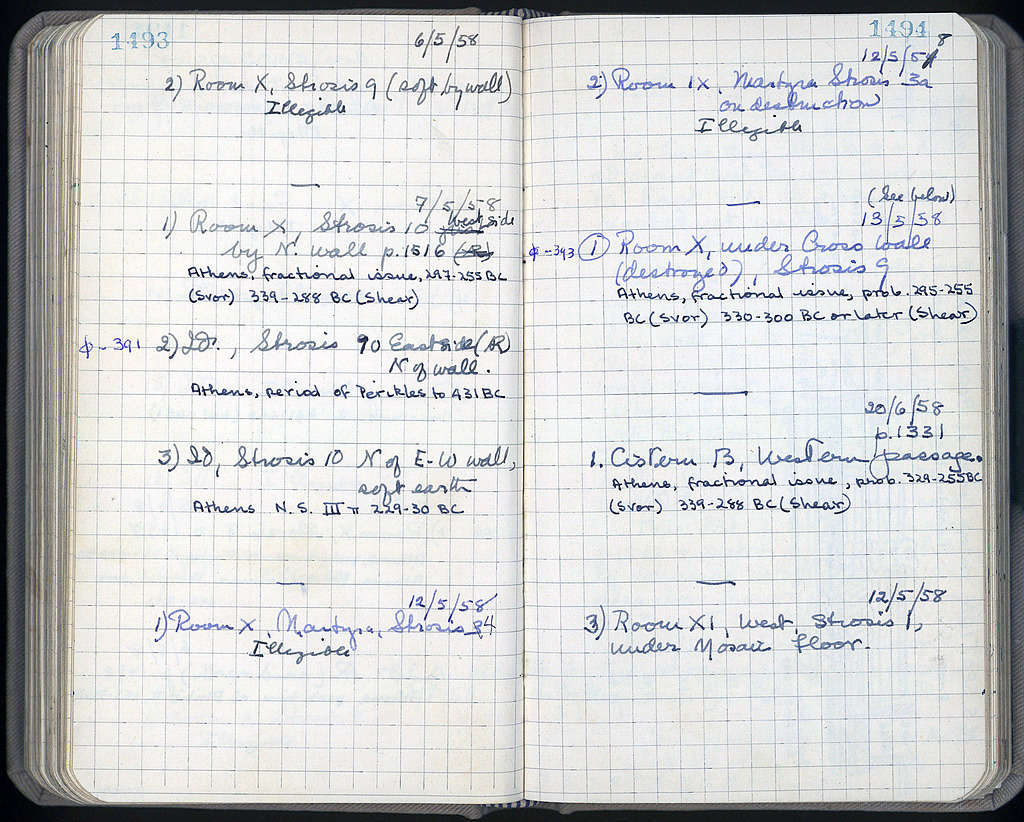 1493
6/5/58
2) Room X, Strosis 9 (soft by wall)
Illegible
7/5/58
1) Room X, Strosis 10 West side
by N. wall p.1516
Athens, fractional issue, 297-255 BC
(Svor) 339-288 BC (Shear)
φ-391 2) Id., Strosis 90 East side (AR)
N of wall.
Athens, period of Perikles to 431 BC
3) Id, Strosis 10 N of E-W wall,
soft earth
Athens N.S. III π 229-30 BC
12/5/58
1) Room X, Martyra, Strosis 4
Illegible
1494
12/5/58
2) Room IX, Martyra Strosis 3a
on destruction
Illegible
(See below)
13/5/58
φ-393 1 Room X, under Cross wall
(destroyed), Strosis 9
Athens, fractional issue, prob. 295-255
BC (Svor) 330-300 BC or later (Shear)
20/6/58
p.1331
1. Cistern B, Western passage.
Athens, fractional issue, prob. 329-255 BC
(Svor) 339-288 BC (Shear)
12/5/58
3) Room XI, West, Strosis 1,
under Mosaic floor.